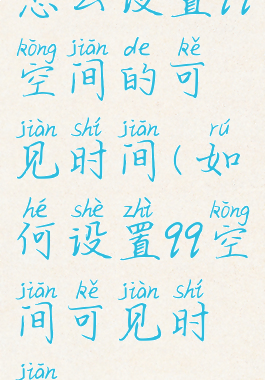 怎么设置99
kōng jiān de kě
空间的可
jiàn shí jiān rú
见时间(如
hé shè zhì kōng
何设置99空
jiān kě jiàn shí
间可见时
jiān